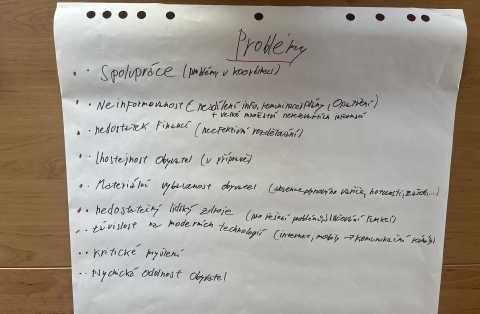 Problémy
Spolupráce (problémy v koordinaci)
Neinformovanost (nesdílení info, komunikace, plány, opatření)
+ velké množství nerelevantních informací
nedostatek financí (neefektivní rozdělování)
lhostejnost obyvatel (v přípravě)
Materiální vybavenost obyvatel (absence vařiče, hotovosti, ...)
nedostatečný lidský zdroje (pro řešení problémů, slučování funkcí)
závislost na moderních technologií (internet, mobily → komunikační kanály)
kritické myšlení
Psychická odolnost obyvatel